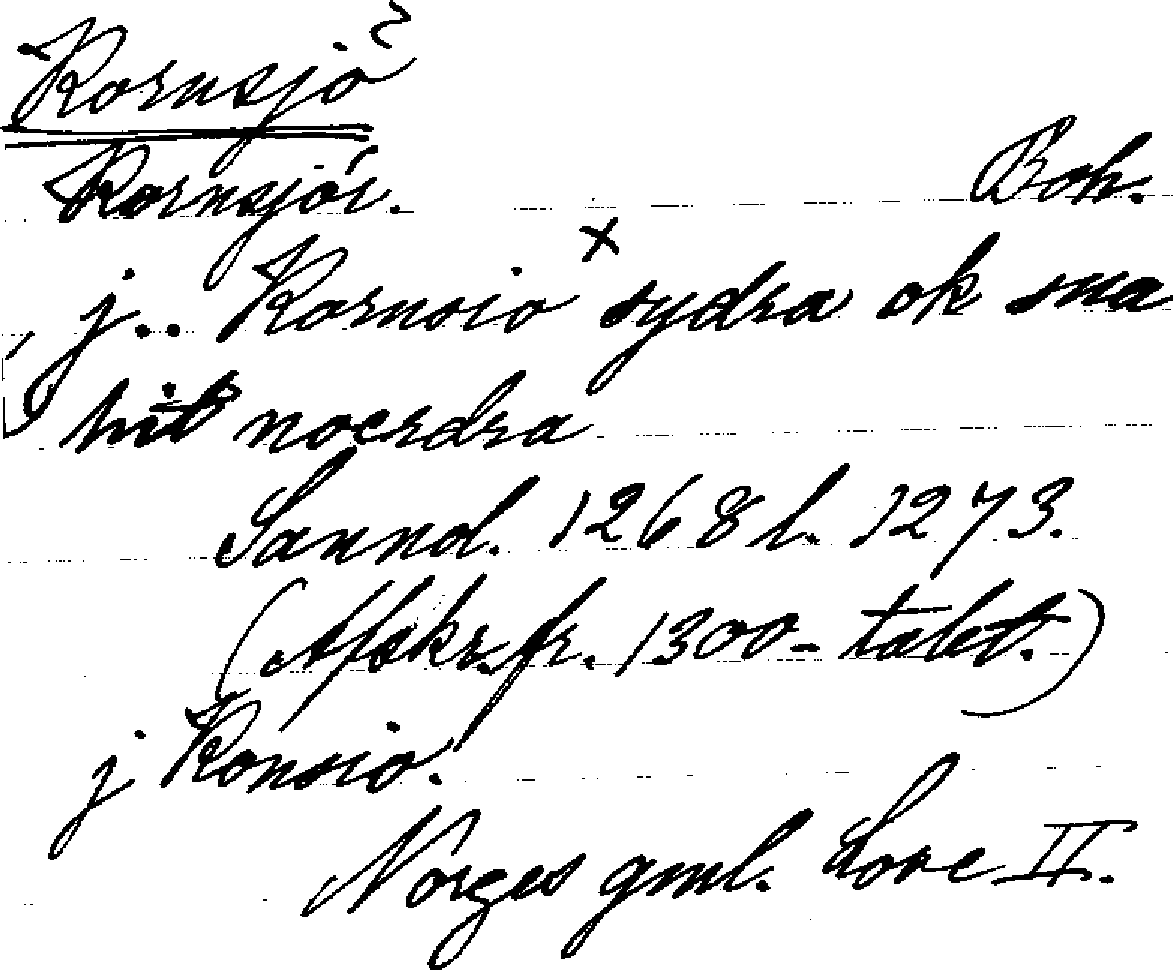 Kornsjö
Kornsjór. Boh.
j.. Kornsio x sydra ok sua
hit noerdra
Sannol. 1268 l. 1273.
(Afskr. fr. 1300-talet.)
j Konsio.
Norges gml. Love II.